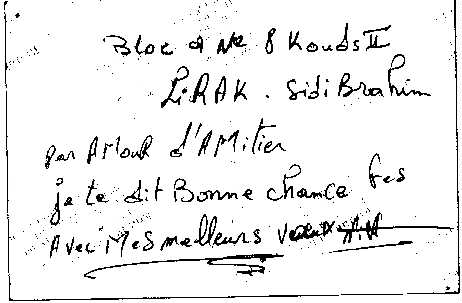 Bloc d Nº 8 Kouds II
LiRAK. Sidi Brahim
par AMouR d'AMitier
je te dit Bonne chance fes
Avec Mes meilleurs veaux